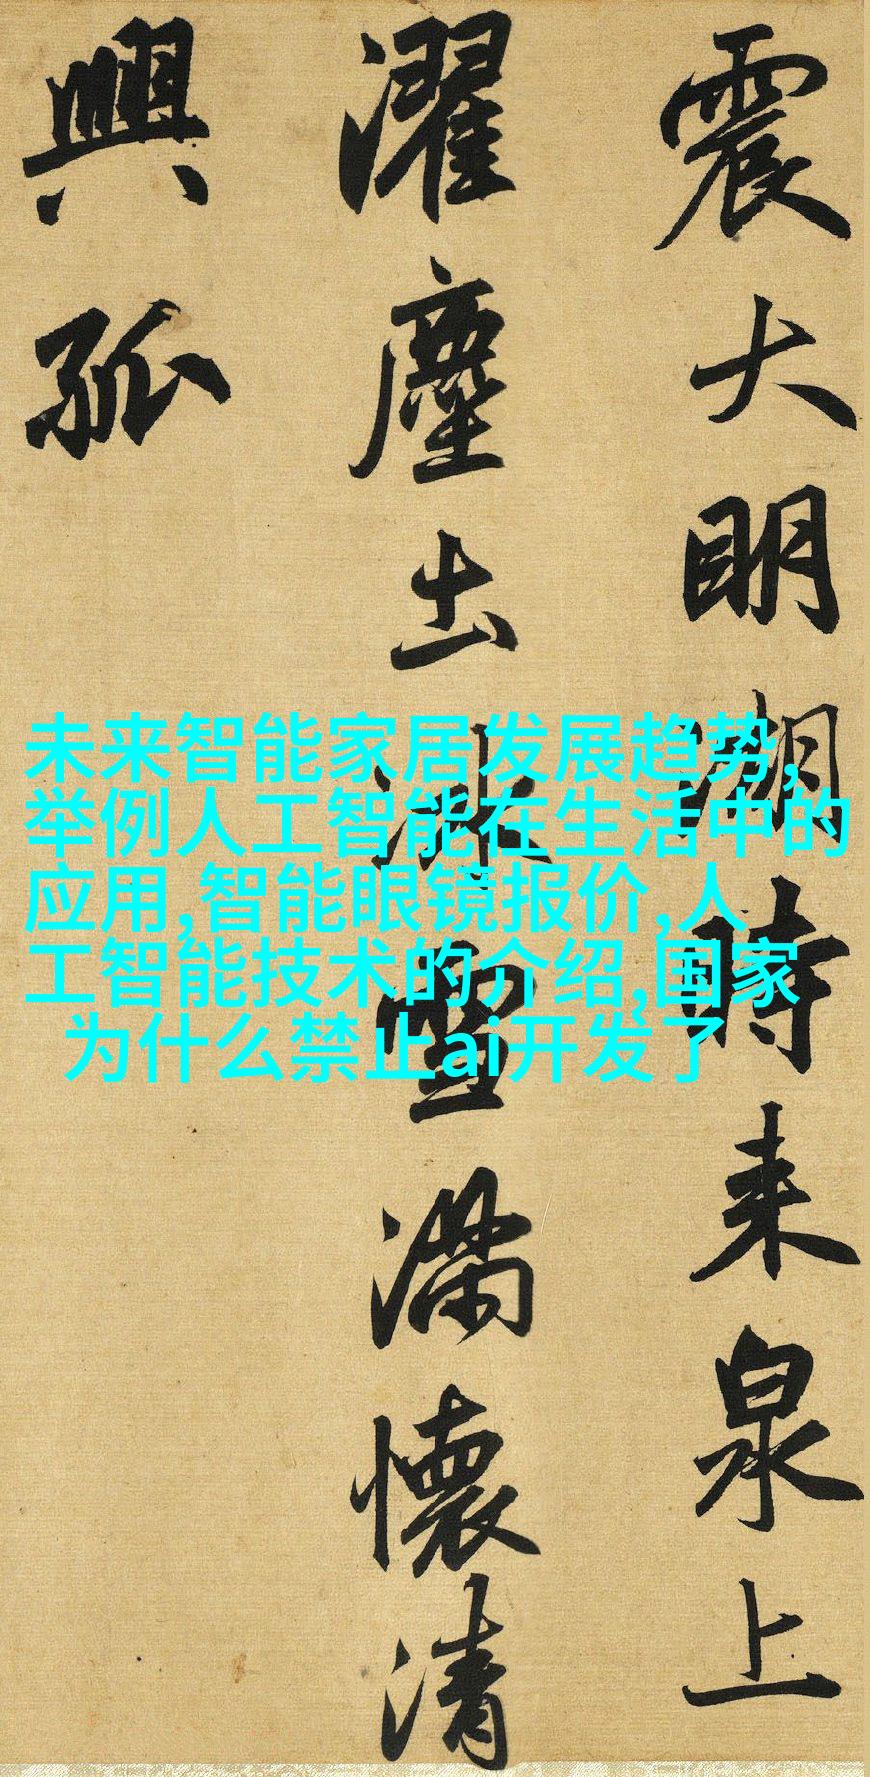 震大明湖時来泉上
濯塵土冰雪満懷清
興孤
未来智能家居发展趋势,
举例人工智能在生活中的
应用,智能眼镜报价,人
工智能技术的介绍,国家
为什么禁止ai开发了